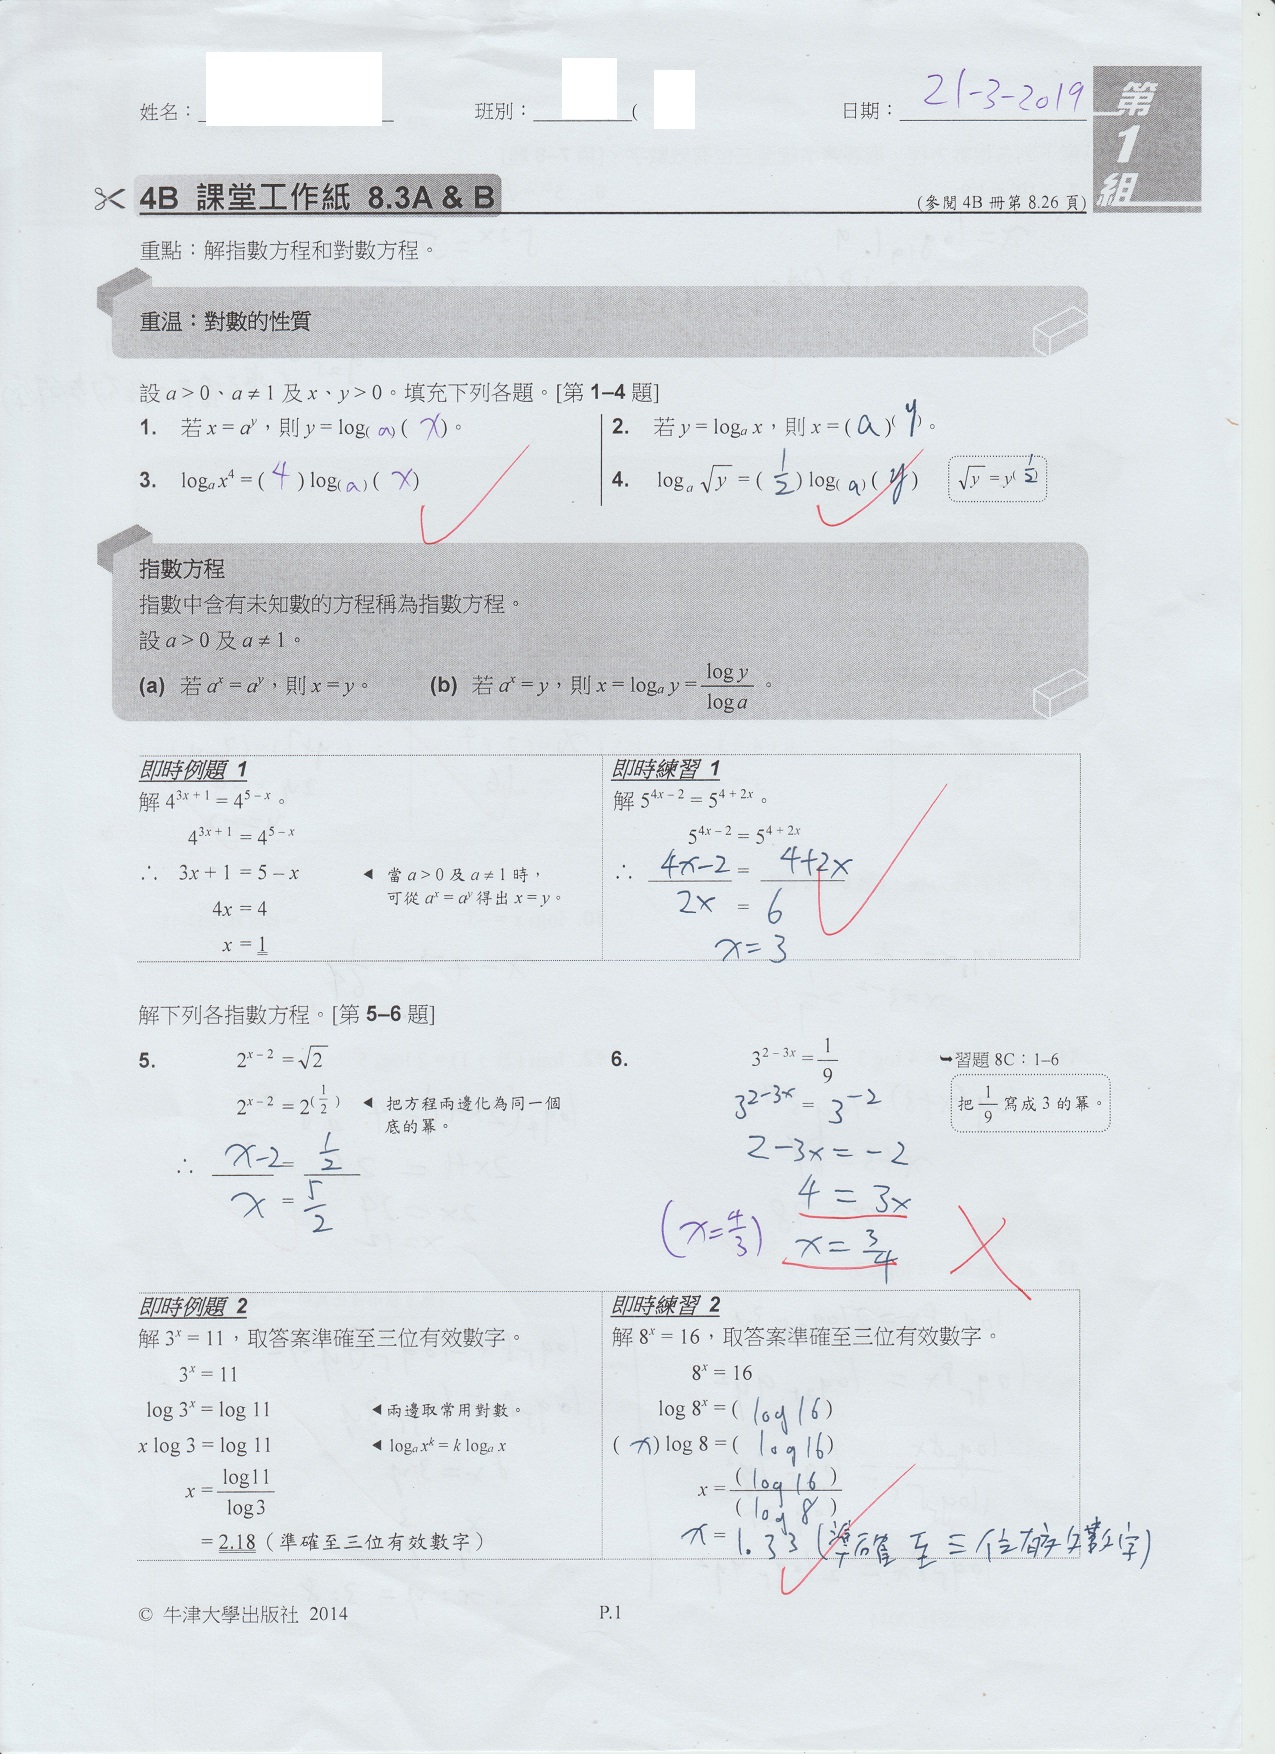 姓名： 班別： ( 日期： 21-3-2019
第
1
組
4B 課堂工作紙 8.3A & B (參閱 4B 冊第 8.26 頁)
重點：解指數方程和對數方程。
重温：對數的性質
設 a > 0、a ≠ 1 及 x、y > 0。填充下列各題。[第 1–4 題]
1. 若 x = a^y，則 y = log_( a ) ( x )。
2. 若 y = log_a x，則 x = ( a )^( y )。
3. log_a x^4 = ( 4 ) log_( a ) ( x )
4. log_a √y = ( 1/2 ) log_( a ) ( y ) √y = y^( 1/2 )
指數方程
指數中含有未知數的方程稱為指數方程。
設 a > 0 及 a ≠ 1。
(a) 若 a^x = a^y，則 x = y。 (b) 若 a^x = y，則 x = log_a y = log y / log a。
即時例題 1
解 4^(3x + 1) = 4^(5 – x)。
4^(3x + 1) = 4^(5 – x)
∴ 3x + 1 = 5 – x ◄ 當 a > 0 及 a ≠ 1 時，
可從 a^x = a^y 得出 x = y。
4x = 4
x = 1
即時練習 1
解 5^(4x – 2) = 5^(4 + 2x)。
5^(4x – 2) = 5^(4 + 2x)
∴ 4x-2 = 4+2x
2x = 6
x = 3
解下列各指數方程。[第 5–6 題]
5. 2^(x – 2) = √2
2^(x – 2) = 2^( 1/2 ) ◄ 把方程兩邊化為同一個
底的冪。
∴ x-2 = 1/2
x = 5/2
6. 3^(2 – 3x) = 1/9 ➥習題 8C：1–6
3^(2-3x) = 3^(-2) 把 1/9 寫成 3 的冪。
2-3x = -2
4 = 3x
(x = 4/3) x = 3/4
即時例題 2
解 3^x = 11，取答案準確至三位有效數字。
3^x = 11
log 3^x = log 11 ◄兩邊取常用對數。
x log 3 = log 11 ◄ log_a x^k = k log_a x
x = log11 / log3
= 2.18（準確至三位有效數字）
即時練習 2
解 8^x = 16，取答案準確至三位有效數字。
8^x = 16
log 8^x = ( log 16 )
( x ) log 8 = ( log 16 )
x = ( log 16 ) / ( log 8 )
x = 1.33 (準確至三位有效數字)
© 牛津大學出版社 2014 P.1